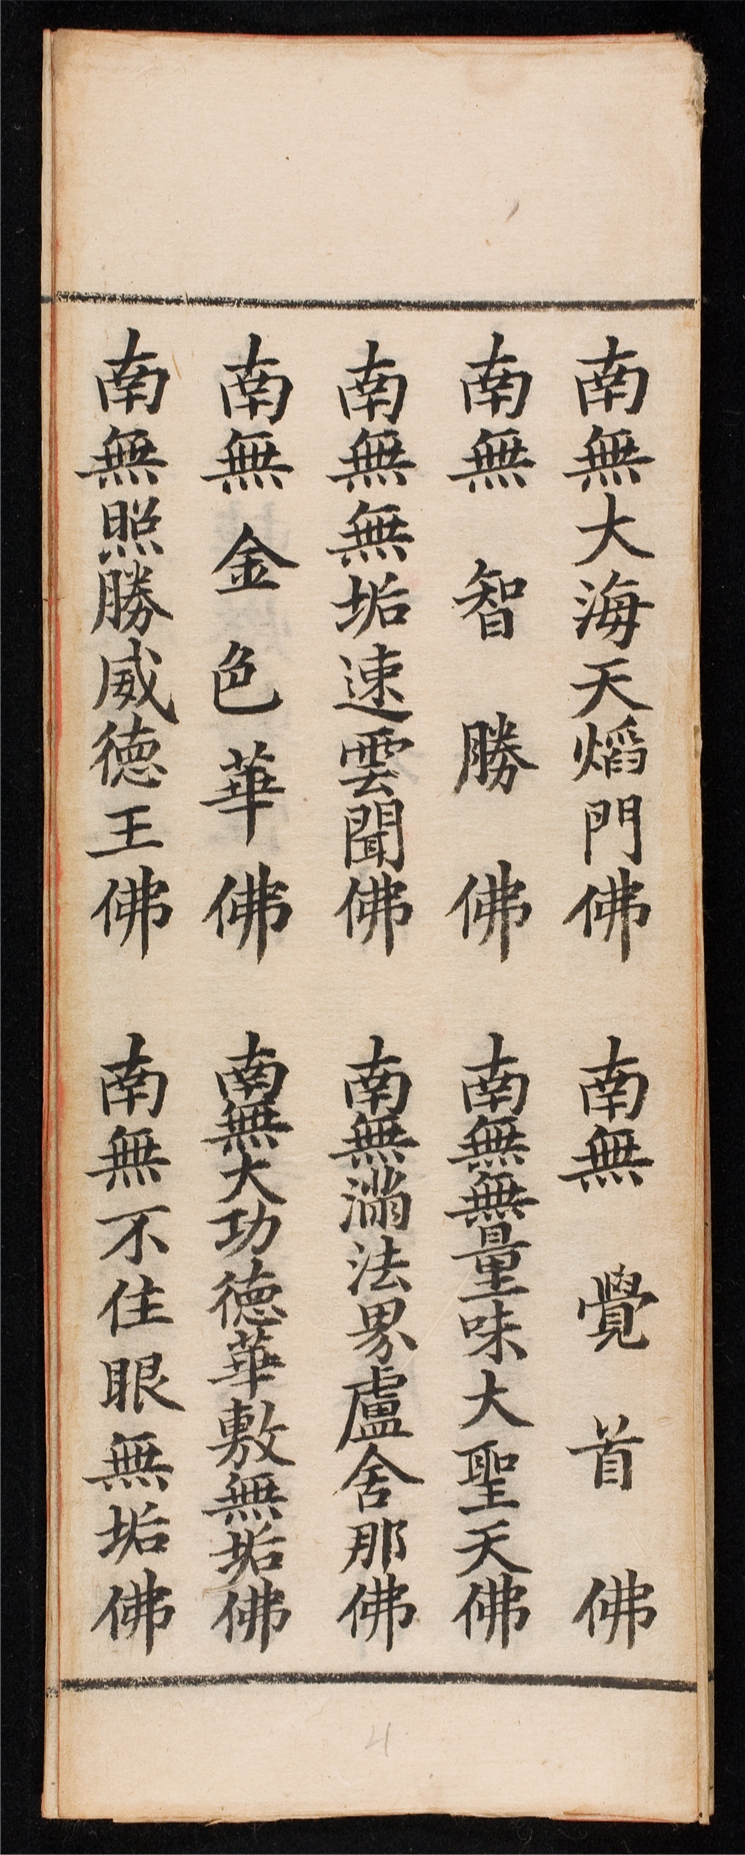 南無大海天熖門佛 南無覺首佛
南無智勝佛 南無無量味大聖天佛
南無無垢速雲聞佛 南無滿法界盧舍那佛
南無金色華佛 南無大功德華敷無垢佛
南無照勝威德王佛 南無不住眼無垢佛
4